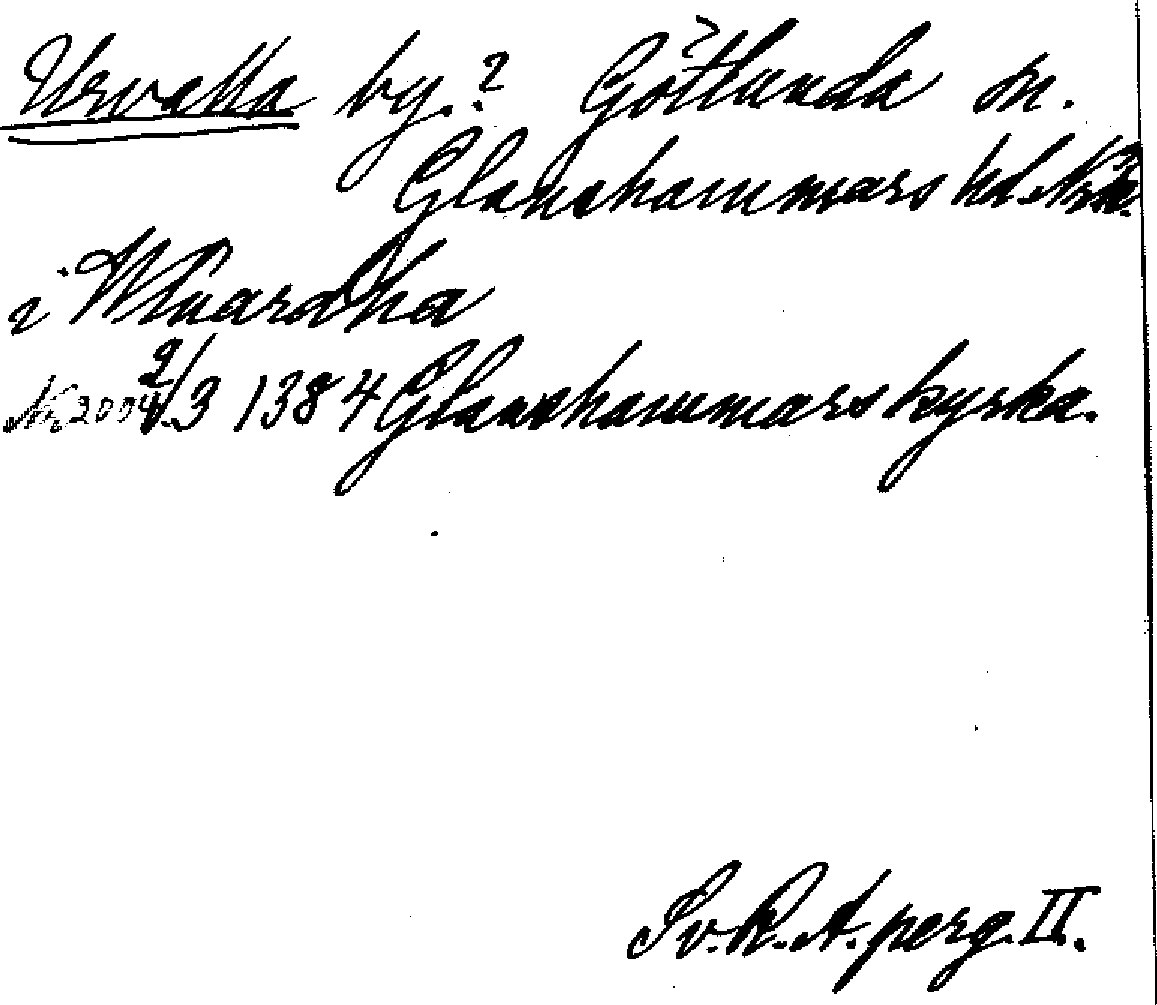 Urvalla by.? Götlunda sn.
Glanshammars hd. Nke.
i Wluardha
Nr 2004 2/3 1384 Glanshammars kyrka.
Sv. R. A. perg. II.